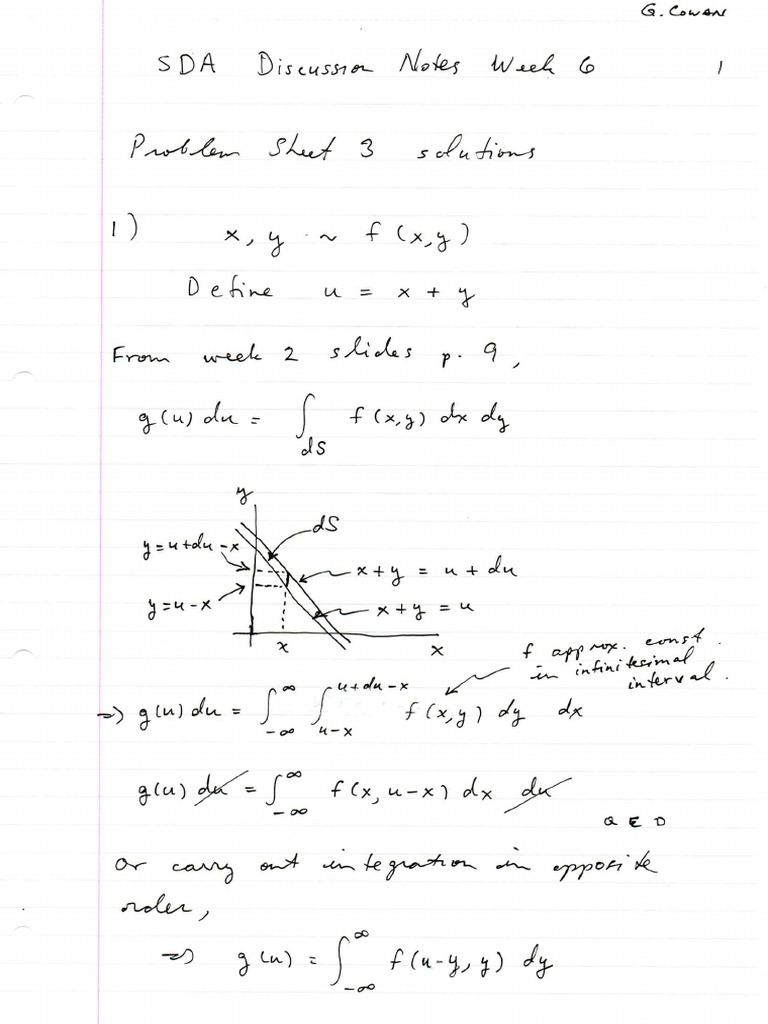 G. COWAN
SDA Discussion Notes Week 6 1
Problem Sheet 3 solutions
1) x, y ~ f(x,y)
Define u = x + y
From week 2 slides p. 9,
g(u) du = ∫_{dS} f(x,y) dx dy
y
dS
y=u+du-x
x+y = u+du
y=u-x
x+y = u
x x
f approx. const.
in infinitesimal
interval.
=> g(u) du = ∫_{-∞}^{∞} ∫_{u-x}^{u+du-x} f(x,y) dy dx
g(u) du = ∫_{-∞}^{∞} f(x, u-x) dx du
QED
Or carry out integration in opposite
order,
=> g(u) = ∫_{-∞}^{∞} f(u-y, y) dy